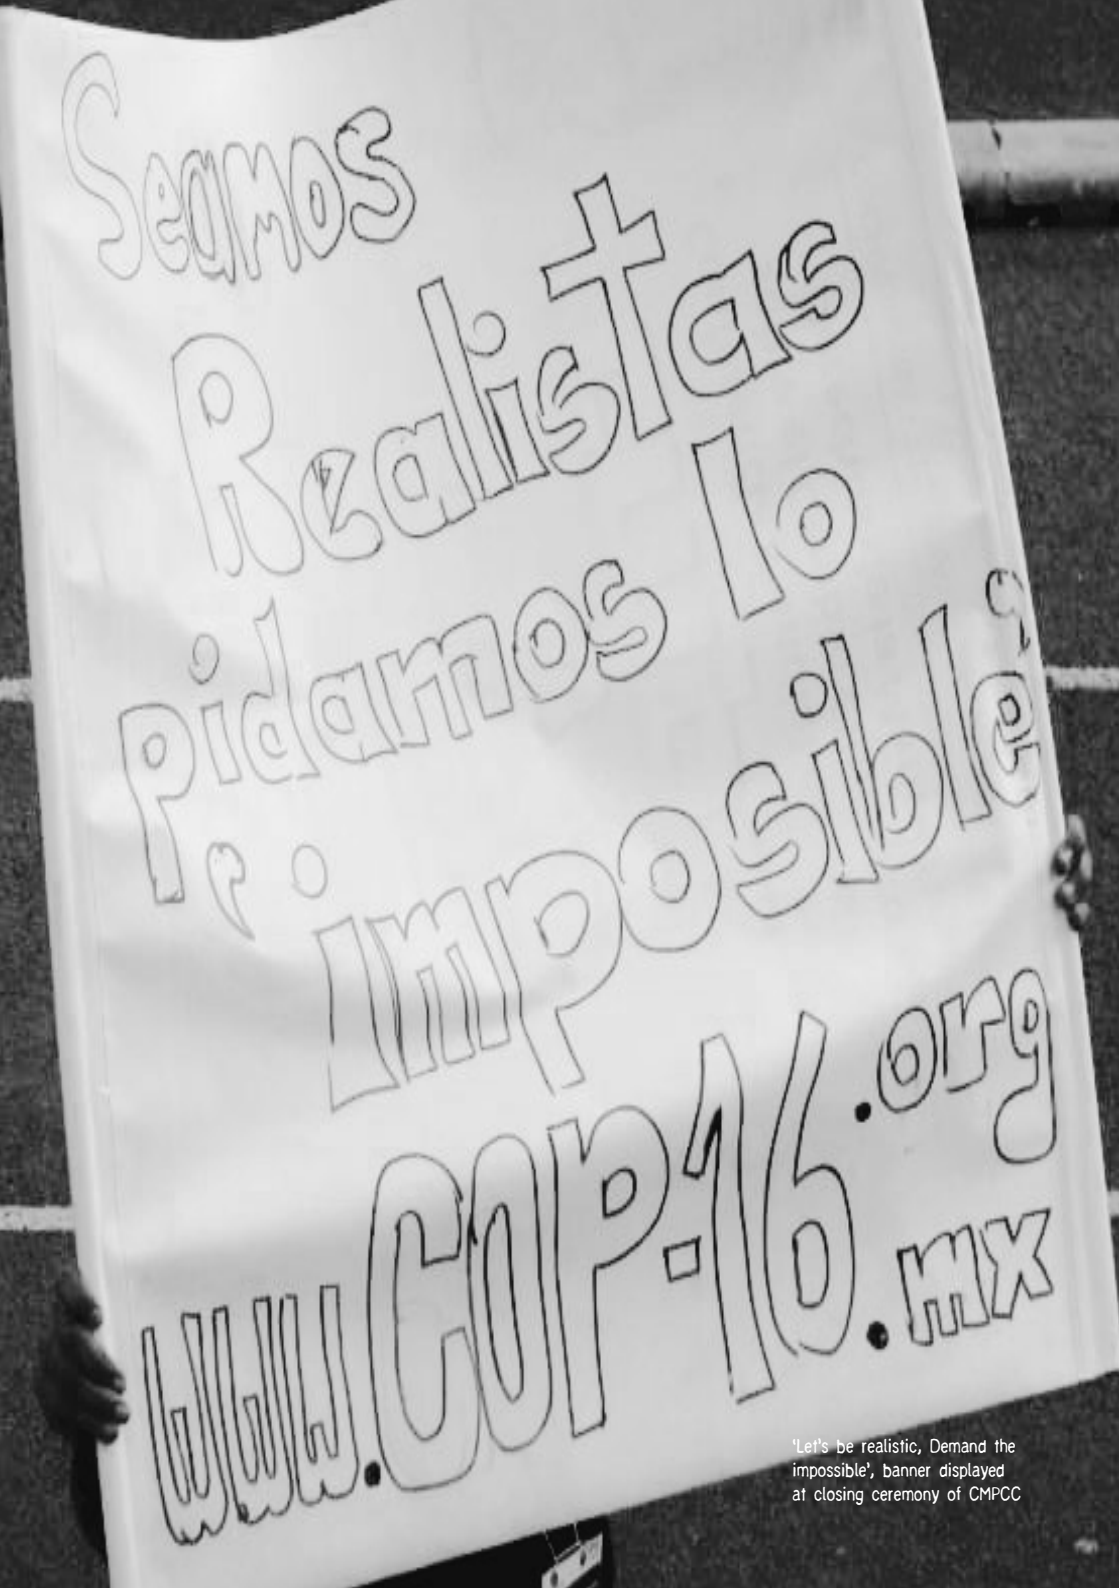 Seamos
Realistas
pidamos lo
'imposible'
www.COP-16.org
.mx
'Let's be realistic, Demand the
impossible', banner displayed
at closing ceremony of CMPCC